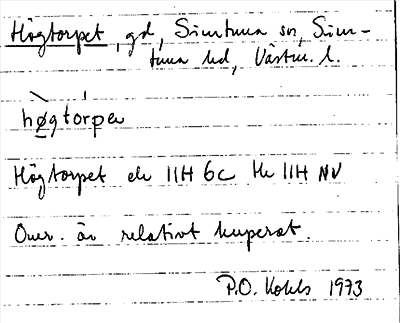 Högtorpet, gd, Simtuna sn, Sim-
tuna hd, Västm. l.
høgtorpeṇ
Högtorpet ek 11H 6c tk 11H NV
Omr. är relativt kuperat.
P.O. Kohls 1973